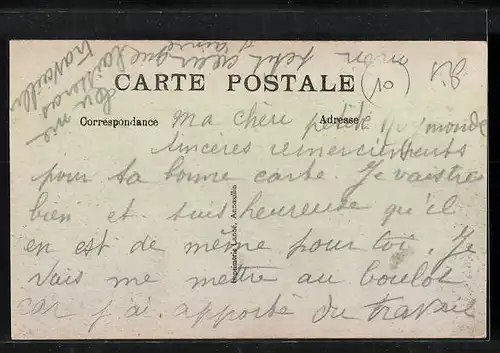 mon petit cœur que
d'aimer
travailler
(10)
CARTE POSTALE
Correspondance
Adresse
Ma chère petite
Sincères remerciements
pour ta bonne carte. Je vais très
bien et suis heureuse qu'il
en est de même pour toi. Je
vais me mettre au boulot
car j'ai apporté du travail